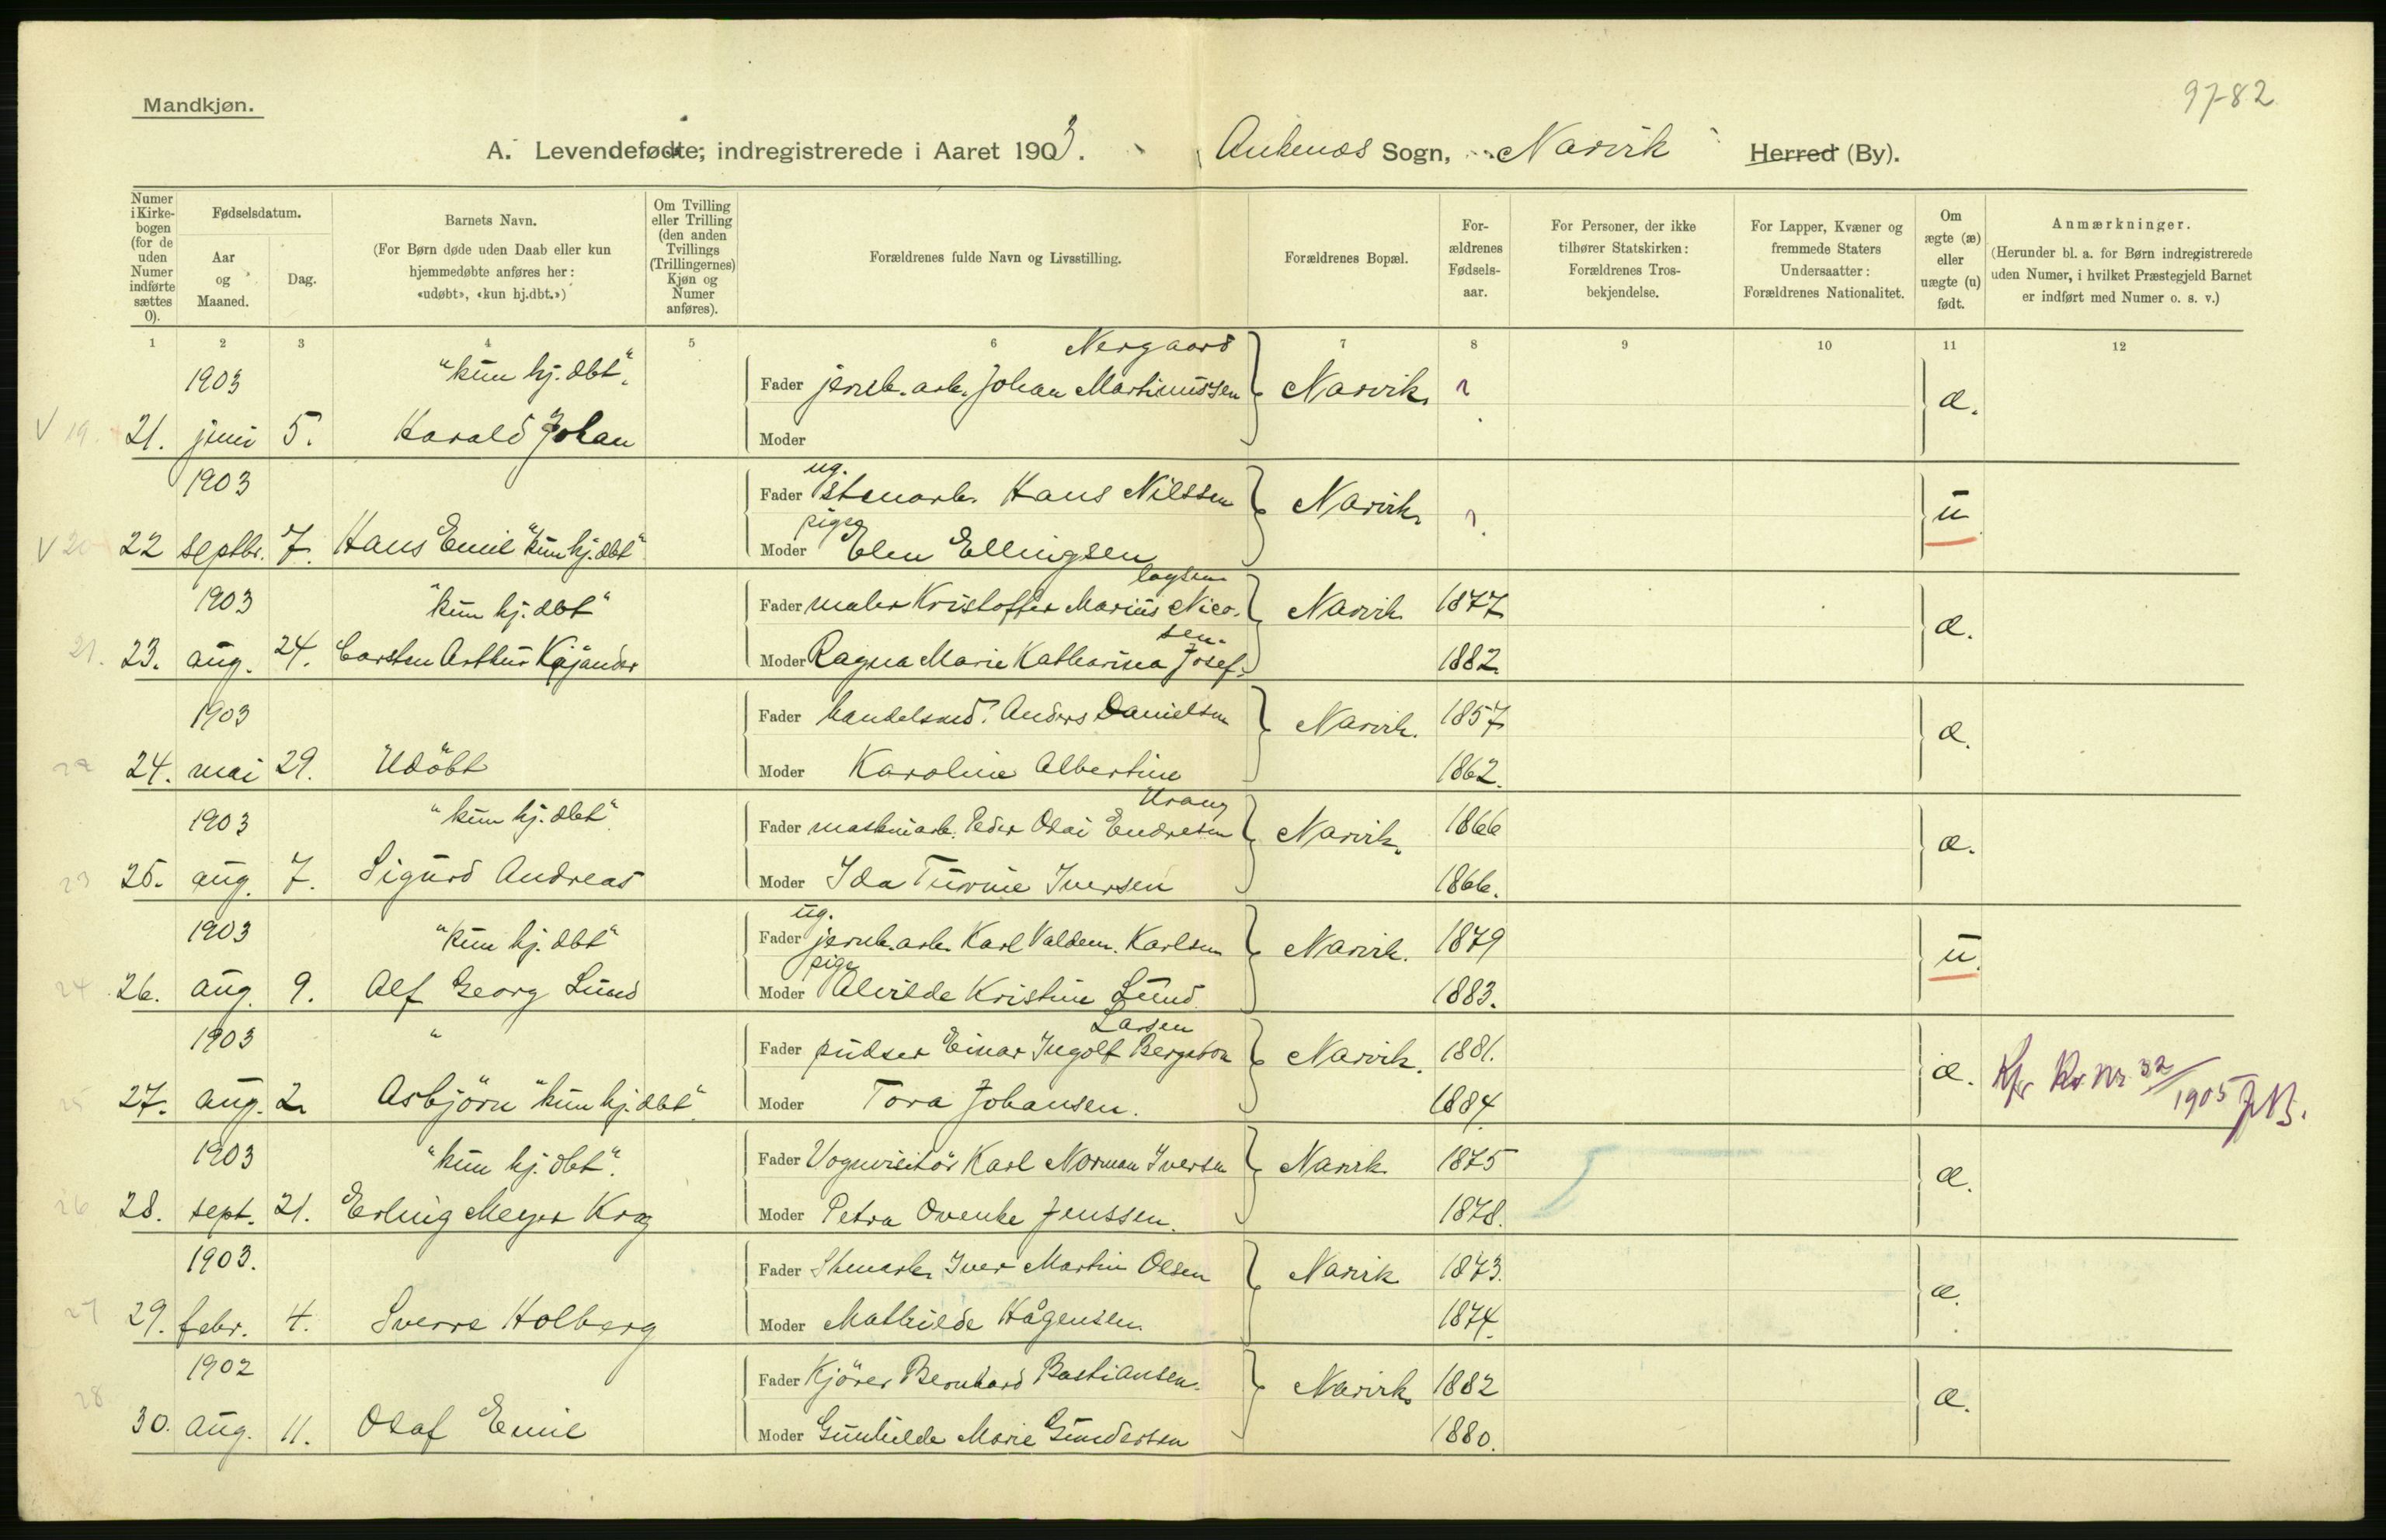 97-82
Mandkjøn.
A. Levendefødte, indregistrerede i Aaret 1903. Ankenæs Sogn, Narvik Herred (By).
Numer i Kirkebogen (for de uden Numer indførte sættes 0).
Fødselsdatum.
Aar og Maaned.
Dag.
Barnets Navn.
(For Børn døde uden Daab eller kun hjemmedøbte anføres her: «udøbt», «kun hj.dbt.»)
Om Tvilling eller Trilling (den anden Tvillings (Trillingernes) Kjøn og Numer anføres).
Forældrenes fulde Navn og Livsstilling.
Forældrenes Bopæl.
For-ældrenes Fødsels-aar.
For Personer, der ikke tilhører Statskirken: Forældrenes Tros-bekjendelse.
For Lapper, Kvæner og fremmede Staters Undersaatter: Forældrenes Nationalitet.
Om ægte (æ) eller uægte (u) født.
Anmærkninger.
(Herunder bl. a. for Børn indregistrerede uden Numer, i hvilket Præstegjeld Barnet er indført med Numer o. s. v.)
1 2 3 4 5 6 7 8 9 10 11 12
1903 "kun hj. dbt". Nergaard
Fader jernb. arb. Johan Martinussen Narvik ? æ.
V 19. 21. juni 5. Harald Johan Moder
1903 Fader ug. stenarb. Hans Nilssen Narvik ? u
V 20 22 septbr. 7. Hans Emil "kun hj. dbt" Moder pige Elen Ellingsen
1903 "kun hj. dbt" Fader maler Kristoffer Marius Nicolaysen Narvik 1877 æ.
21. 23. aug. 24. Carsten Arthur Kajander Moder Ragna Marie Katharina Josefsen 1882
1903 Fader handelsmd. Anders Danielsen Narvik. 1857 æ.
22 24. mai 29. Udöbt Moder Karoline Albertine 1862.
1903 "kun hj. dbt" Fader maskinarb. Peder Olai Endresen Urang Narvik. 1866 æ.
23 25. aug. 7. Sigurd Andreas Moder Ida Turine Iversen 1866.
1903 "kun hj. dbt" Fader ug. jernb. arb. Karl Valdem. Karlsen Narvik. 1879 u.
24 26. aug. 9. Alf Georg Lund Moder pige Alvilde Kristine Lund 1883.
1903 " Fader pudser Einar Ingolf Bergeton Larsen Narvik. 1881. æ. Kfr Kv. Nr. 32/1905
25 27. aug. 2. Asbjörn "kun hj. dbt" Moder Tora Johansen. 1884
1903 "kun hj. dbt". Fader Vognvisitör Karl Norman Iversen Narvik 1875 æ.
26 28. sept. 21. Erling Meyer Krog Moder Petra Ovenke Jenssen. 1878.
1903. Fader Stenarb. Iver Martin Olsen Narvik 1873. æ.
27 29. febr. 4. Sverre Holberg Moder Mathilde Hågensen. 1874.
1902 Fader Kjörer Bernhard Bastiansen. Narvik 1882 æ.
28 30. aug. 11. Olaf Emil Moder Gunhilde Marie Gundersen 1880.